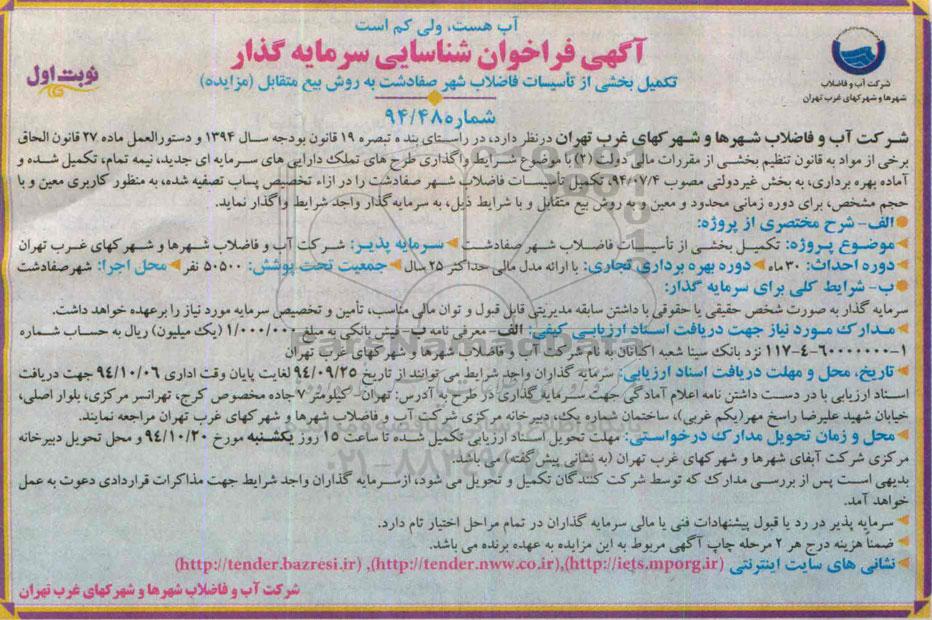 آب هست، ولی کم است
آگهی فراخوان شناسایی سرمایه گذار
نوبت اول
تکمیل بخشی از تأسیسات فاضلاب شهر صفادشت به روش بیع متقابل (مزایده)
شماره ۹۴/۴۸
شرکت آب و فاضلاب
شهرها و شهرکهای غرب تهران
شرکت آب و فاضلاب شهرها و شهرکهای غرب تهران درنظر دارد، در راستای بند ه تبصره ۱۹ قانون بودجه سال ۱۳۹۴ و دستورالعمل ماده ۲۷ قانون الحاق
برخی از مواد به قانون تنظیم بخشی از مقررات مالی دولت (۲) با موضوع شرایط واگذاری طرح های تملک دارایی های سرمایه ای جدید، نیمه تمام، تکمیل شده و
آماده بهره برداری، به بخش غیردولتی مصوب ۹۴/۰۷/۴، تکمیل تأسیسات فاضلاب شهر صفادشت را در ازاء تخصیص پساب تصفیه شده، به منظور کاربری معین و با
حجم مشخص، برای دوره زمانی محدود و معین و به روش بیع متقابل و با شرایط ذیل، به سرمایه گذار واجد شرایط واگذار نماید.
الف- شرح مختصری از پروژه:
موضوع پروژه: تکمیل بخشی از تأسیسات فاضلاب شهر صفادشت سرمایه پذیر: شرکت آب و فاضلاب شهرها و شهرکهای غرب تهران
دوره احداث: ۳۰ ماه دوره بهره برداری تجاری: با ارائه مدل مالی حداکثر ۲۵ سال جمعیت تحت پوشش: ۵۰۵۰۰ نفر محل اجرا: شهر صفادشت
ب- شرایط کلی برای سرمایه گذار:
سرمایه گذار به صورت شخص حقیقی یا حقوقی با داشتن سابقه مدیریتی قابل قبول و توان مالی مناسب، تأمین و تخصیص سرمایه مورد نیاز را برعهده خواهد داشت.
مدارک مورد نیاز جهت دریافت اسناد ارزیابی کیفی: الف- معرفی نامه ب- فیش بانکی به مبلغ ۱/۰۰۰/۰۰۰ (یک میلیون) ریال به حساب شماره
۱-۶۰۰۰۰۰۰۰-۴-۱۱۷ نزد بانک سینا شعبه اکباتان به نام شرکت آب و فاضلاب شهرها و شهرکهای غرب تهران
تاریخ، محل و مهلت دریافت اسناد ارزیابی: سرمایه گذاران واجد شرایط می توانند از تاریخ ۹۴/۰۹/۲۵ لغایت پایان وقت اداری ۹۴/۱۰/۰۶ جهت دریافت
اسناد ارزیابی با در دست داشتن نامه اعلام آمادگی جهت سرمایه گذاری در طرح به آدرس: تهران- کیلومتر ۷ جاده مخصوص کرج، تهرانسر مرکزی، بلوار اصلی،
خیابان شهید علیرضا راسخ مهر(یکم غربی)، ساختمان شماره یک، دبیرخانه مرکزی شرکت آب و فاضلاب شهرها و شهرکهای غرب تهران مراجعه نمایند.
محل و زمان تحویل مدارک درخواستی: مهلت تحویل اسناد ارزیابی تکمیل شده تا ساعت ۱۵ روز یکشنبه مورخ ۹۴/۱۰/۲۰ و محل تحویل دبیرخانه
مرکزی شرکت آبفای شهرها و شهرکهای غرب تهران (به نشانی پیش گفته) می باشد.
بدیهی است پس از بررسی مدارک که توسط شرکت کنندگان تکمیل و تحویل می شود، ازسرمایه گذاران واجد شرایط جهت مذاکرات قراردادی دعوت به عمل
خواهد آمد.
سرمایه پذیر در رد یا قبول پیشنهادات فنی یا مالی سرمایه گذاران در تمام مراحل اختیار تام دارد.
ضمناً هزینه درج هر ۲ مرحله چاپ آگهی مربوط به این مزایده به عهده برنده می باشد.
نشانی های سایت اینترنتی (http://iets.mporg.ir)،(http://tender.nww.co.ir)، (http://tender.bazresi.ir)
شرکت آب و فاضلاب شهرها و شهرکهای غرب تهران